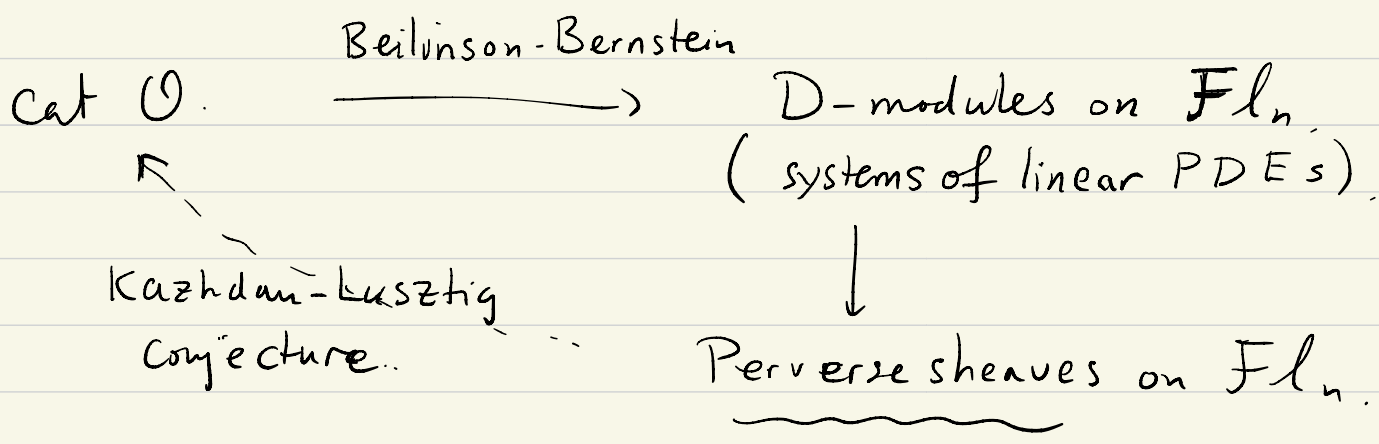 Beilinson-Bernstein
Cat O. D-modules on Fl_n.
(systems of linear PDEs).
Kazhdan-Lusztig
conjecture..
Perverse sheaves on Fl_n.